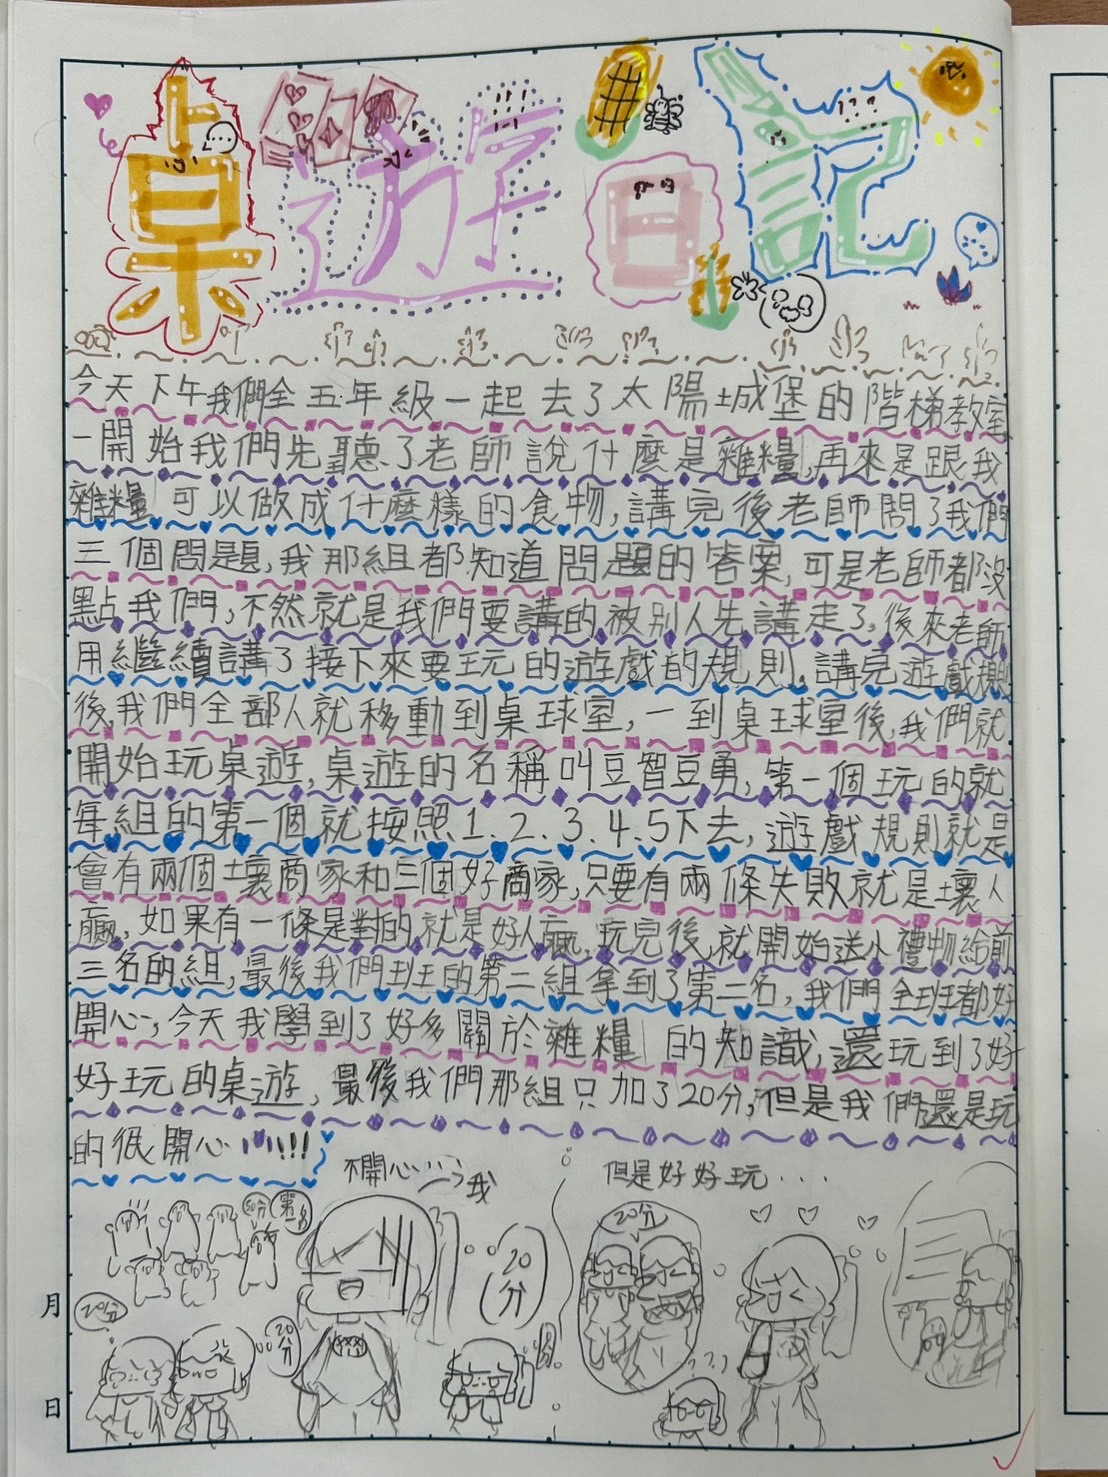 桌遊日記
今天下午我們全五年級一起去了太陽城堡的階梯教室
一開始我們先聽了老師說什麼是雜糧,再來是跟我
雜糧可以做成什麼樣的食物,講完後老師問了我們
三個問題,我那組都知道問題的答案,可是老師都沒
點我們,不然就是我們要講的被別人先講走了,後來老師
用繼續講了接下來要玩的遊戲的規則,講完遊戲規則
後,我們全部人就移動到桌球室,一到桌球室後,我們就
開始玩桌遊,桌遊的名稱叫豆智豆勇,第一個玩的就
每組的第一個就按照1.2.3.4.5下去,遊戲規則就是
會有兩個壞商家和三個好商家,只要有兩條失敗就是壞人
贏,如果有一條是對的就是好人贏,玩完後,就開始送小禮物給前
三名的組,最後我們班的第二組拿到了第二名,我們全班都好
開心,今天我學到了好多關於雜糧的知識,還玩到了好
好玩的桌遊,最後我們那組只加了20分,但是我們還是玩
的很開心!!!!
不開心 我
但是好好玩...
50分
第一名
20分
20分
20分
20分
月
日